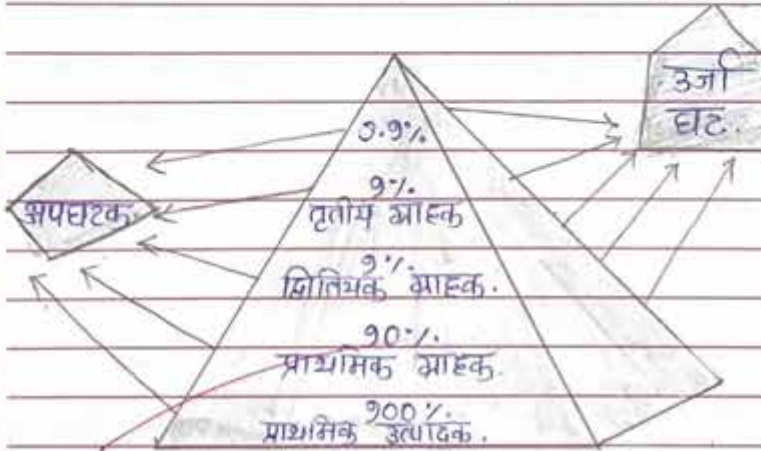 उर्जा
घट.
१.१%
१%
अपघटक.
तृतीय ग्राहक
१%.
द्वितियक ग्राहक.
१०%
प्राथमिक ग्राहक.
१००%.
प्राथमिक उत्पादक.